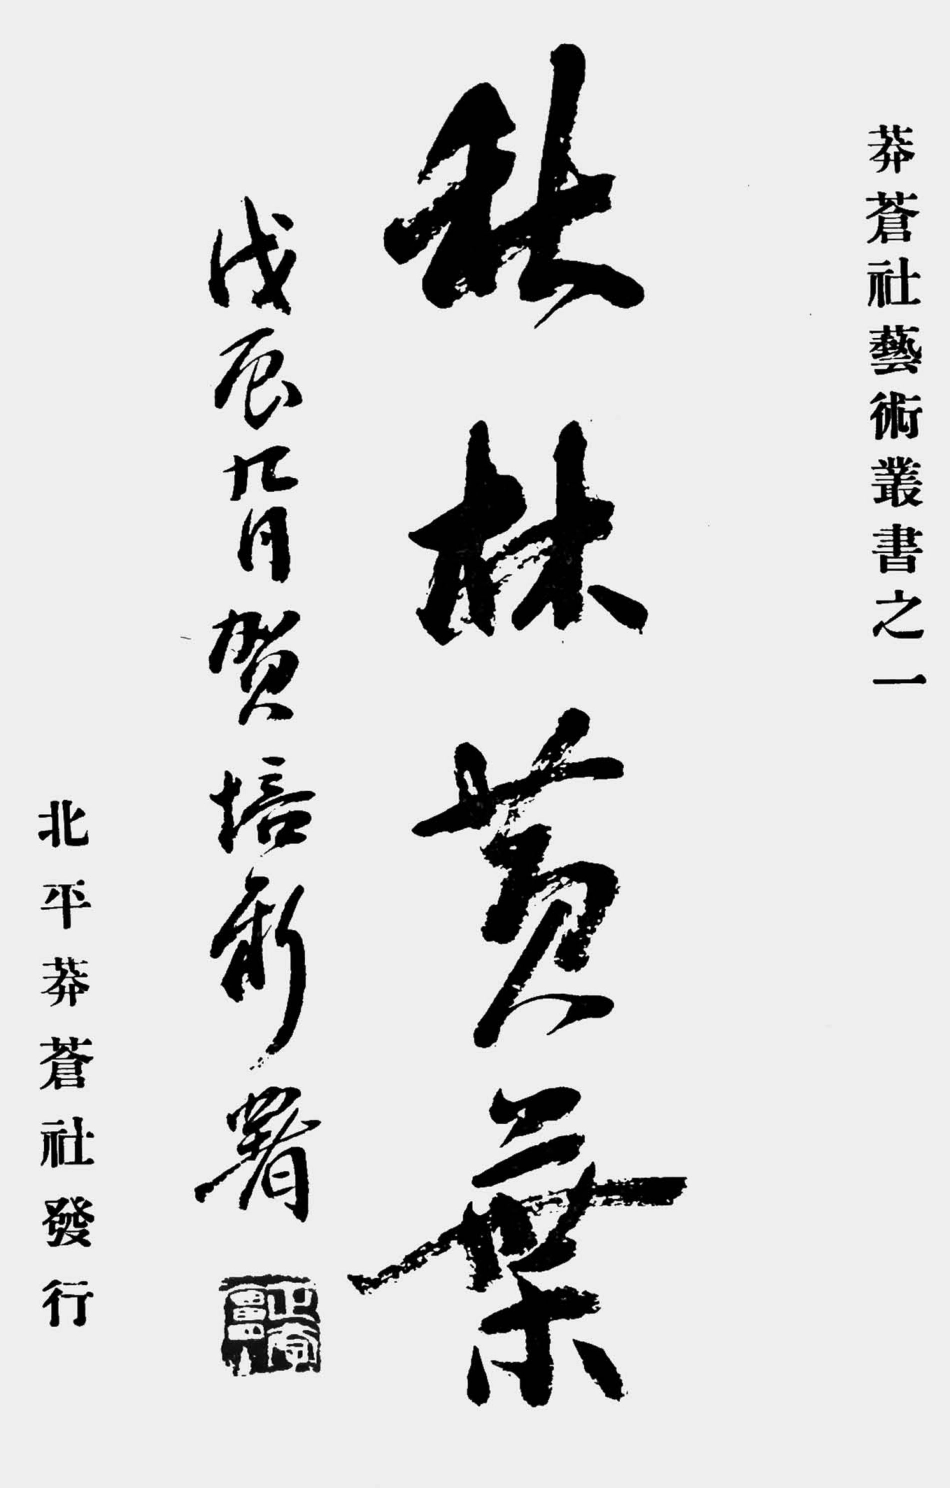 莽蒼社藝術叢書之一
秋林黃葉
戊辰九月賀培新署
北平莽蒼社發行